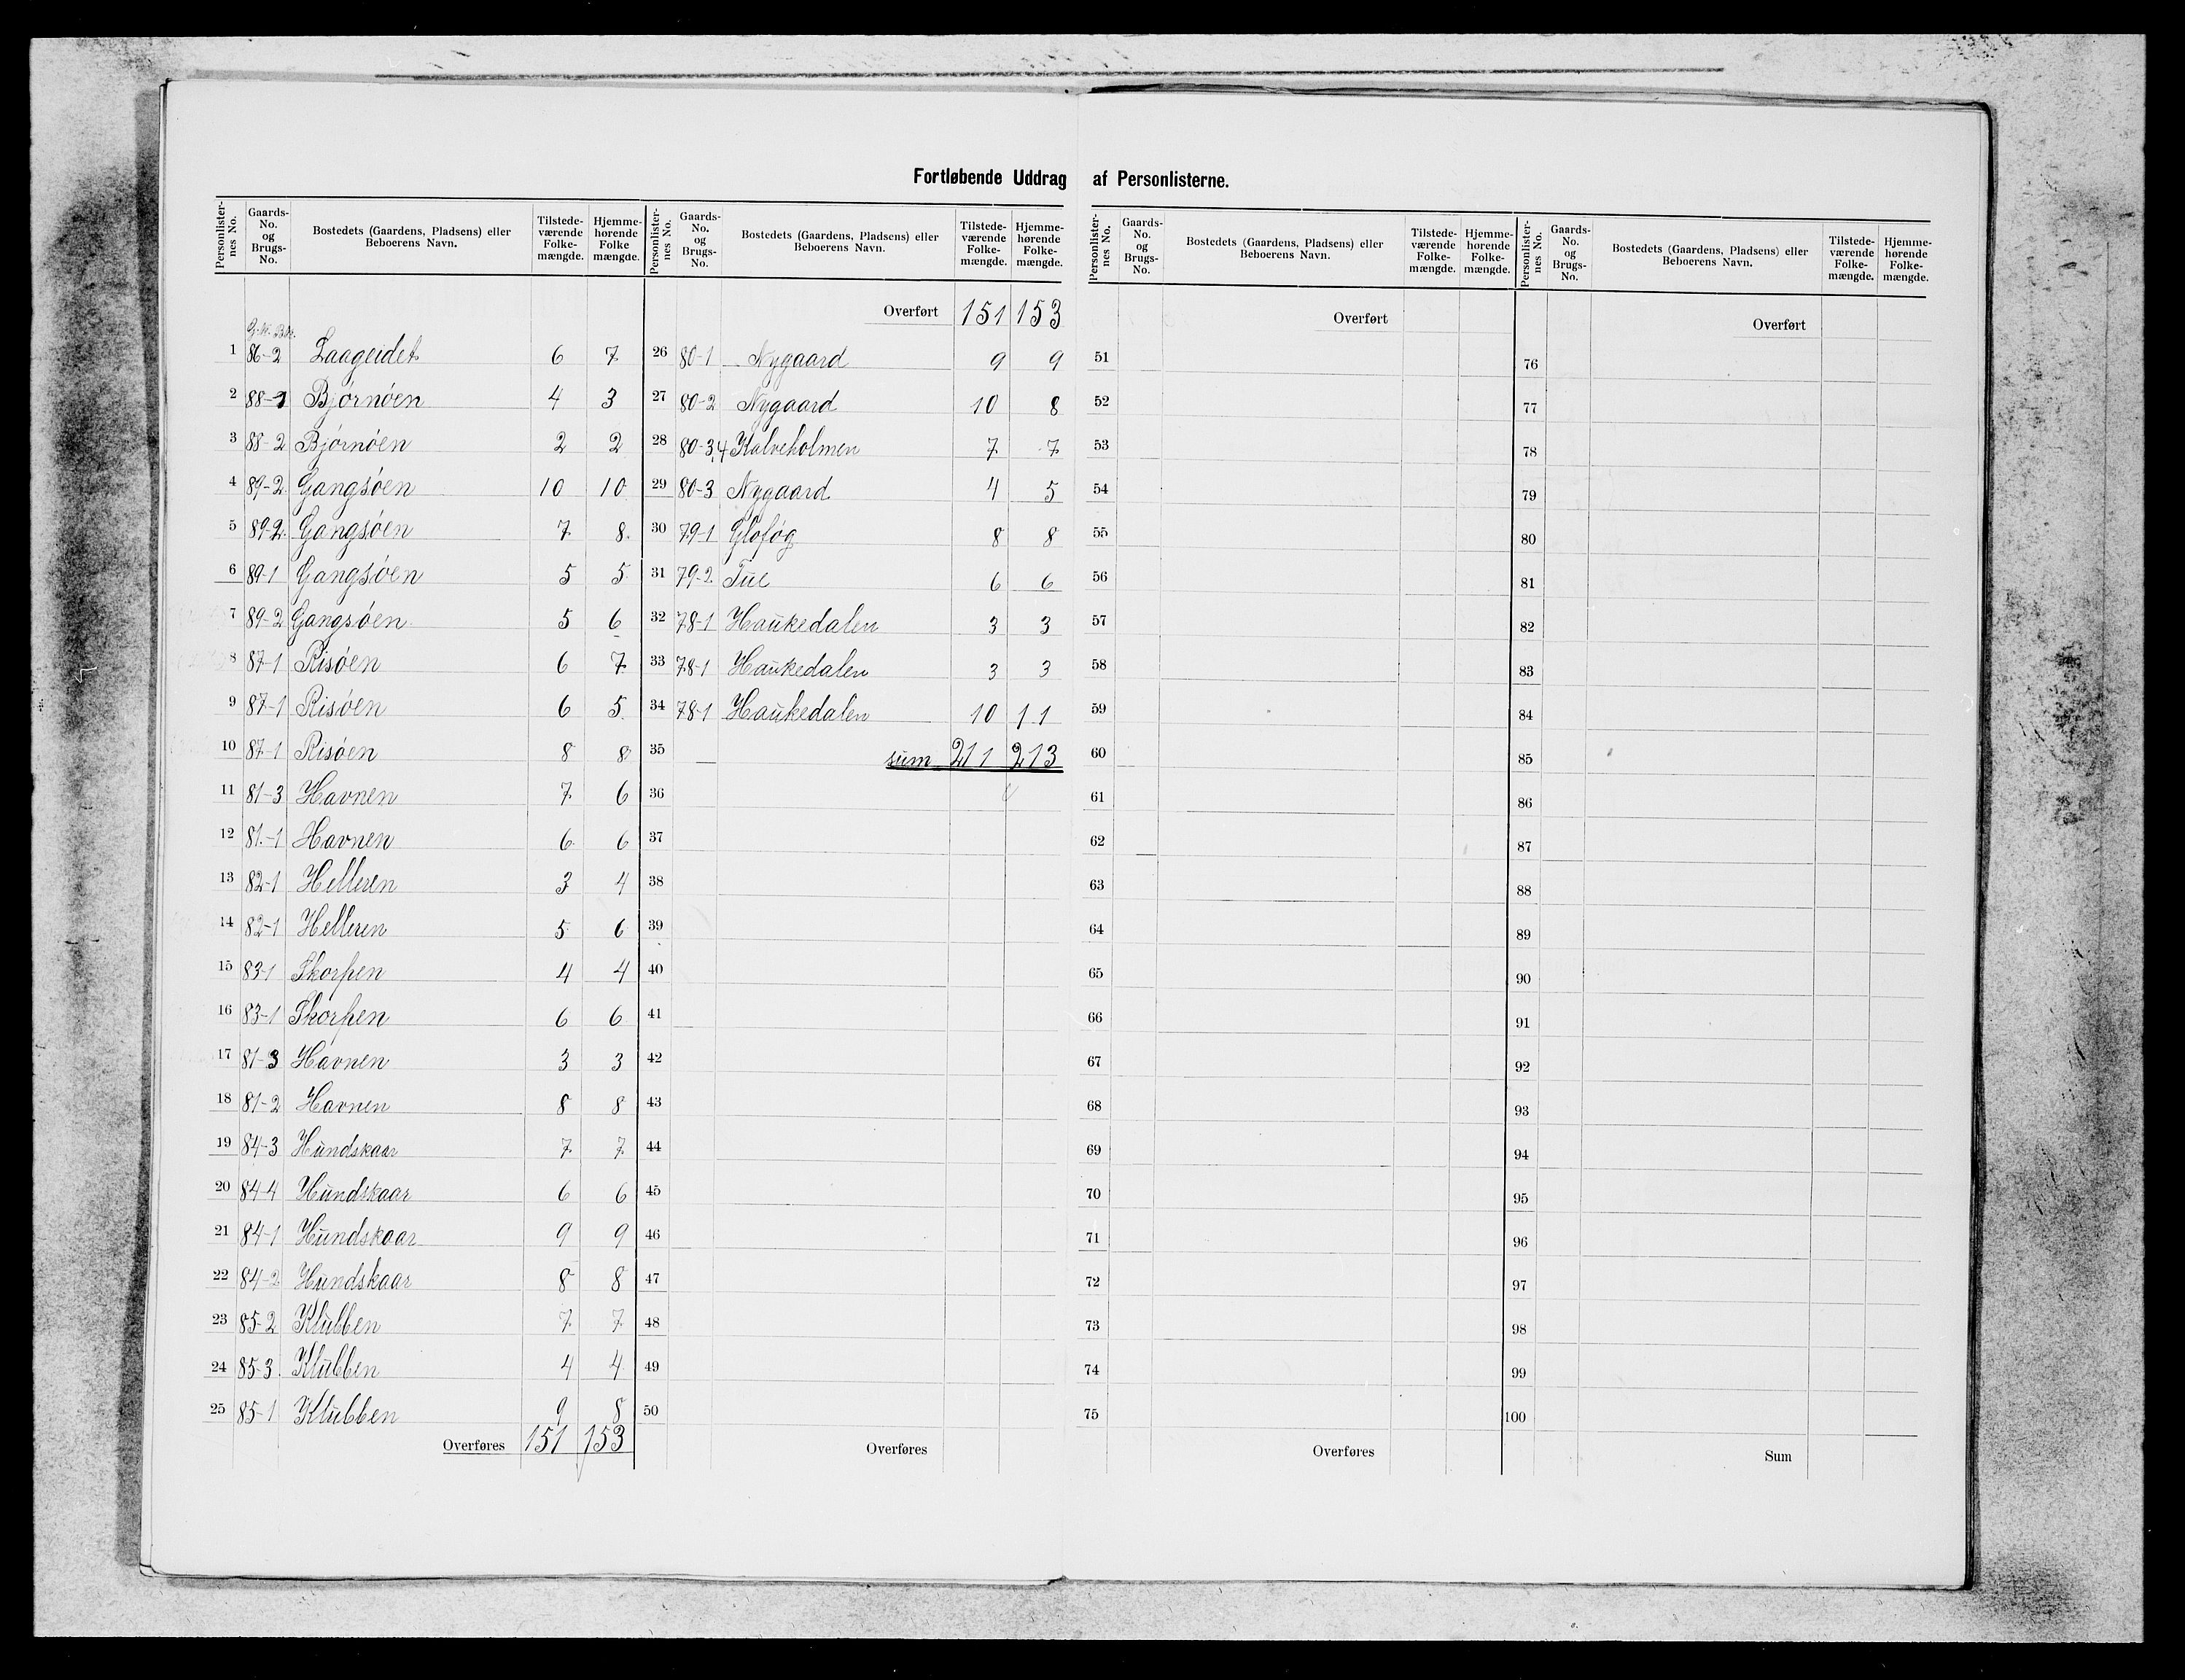 Fortløbende Uddrag af Personlisterne.
Personlister-nes No. Gaards-No. og Brugs-No. Bostedets (Gaardens, Pladsens) eller Beboerens Navn. Tilstede-værende Folke-mængde. Hjemme-hørende Folke mængde.
G.N. B.N.
1 86-2 Laageidet 6 7
2 88-1 Bjørnøen 4 3
3 88-2 Bjørnøen 2 2
4 89-2 Gangsøen 10 10
5 89-2 Gangsøen 7 8
6 89-1 Gangsøen 5 5
7 89-2 Gangsøen 5 6
8 87-1 Risøen 6 7
9 87-1 Risøen 6 5
10 87-1 Risøen 8 8
11 81-3 Havnen 7 6
12 81-1 Havnen 6 6
13 82-1 Helleren 3 4
14 82-1 Helleren 5 6
15 83-1 Skorpen 4 4
16 83-1 Skorpen 6 6
17 81-3 Havnen 3 3
18 81-2 Havnen 8 8
19 84-3 Hundskaar 7 7
20 84-4 Hundskaar 6 6
21 84-1 Hundskaar 9 9
22 84-2 Hundskaar 8 8
23 85-2 Klubben 7 7
24 85-3 Klubben 4 4
25 85-1 Klubben 9 8
Overføres 151 153
Personlister-nes No. Gaards-No. og Brugs-No. Bostedets (Gaardens, Pladsens) eller Beboerens Navn. Tilstede-værende Folke-mængde. Hjemme-hørende Folke-mængde.
Overført 151 153
26 80-1 Nygaard 9 9
27 80-2 Nygaard 10 8
28 80-3,4 Kalveholmen 7 7
29 80-3 Nygaard 4 5
30 79-1 Gloføg 8 8
31 79-2 Tue 6 6
32 78-1 Haukedalen 3 3
33 78-1 Haukedalen 3 3
34 78-1 Haukedalen 10 11
35 sum 211 213
36
37
38
39
40
41
42
43
44
45
46
47
48
49
50
Overføres
Personlister-nes No. Gaards-No. og Brugs-No. Bostedets (Gaardens, Pladsens) eller Beboerens Navn. Tilstede-værende Folke-mængde. Hjemme-hørende Folke-mængde.
Overført
51
52
53
54
55
56
57
58
59
60
61
62
63
64
65
66
67
68
69
70
71
72
73
74
75
Overføres
Personlister-nes No. Gaards-No. og Brugs-No. Bostedets (Gaardens, Pladsens) eller Beboerens Navn. Tilstede-værende Folke-mængde. Hjemme-hørende Folke-mængde.
Overført
76
77
78
79
80
81
82
83
84
85
86
87
88
89
90
91
92
93
94
95
96
97
98
99
100
Sum